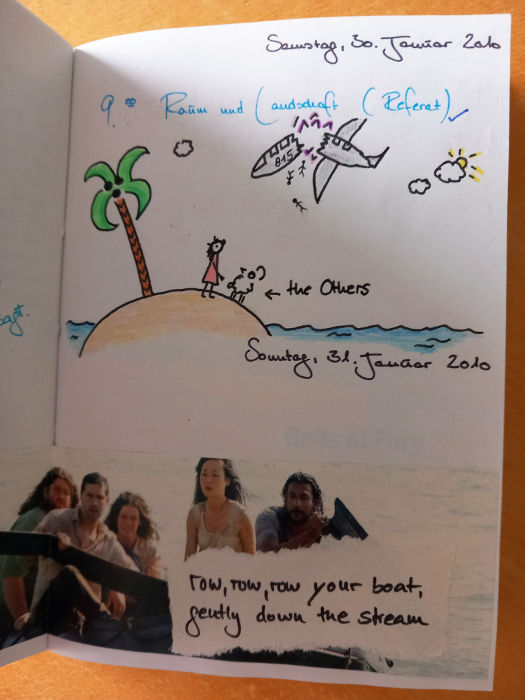 Samstag, 30. Januar 2010
9.00 Raum und Landschaft (Referat)
815
← the Others
Sonntag, 31. Januar 2010
Balls of Fury
row, row, row your boat,
gently down the stream